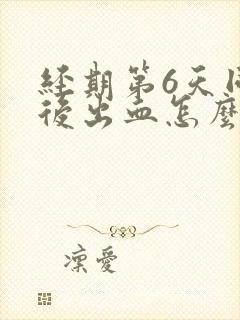 經期第6天
後出血怎麼
凜愛